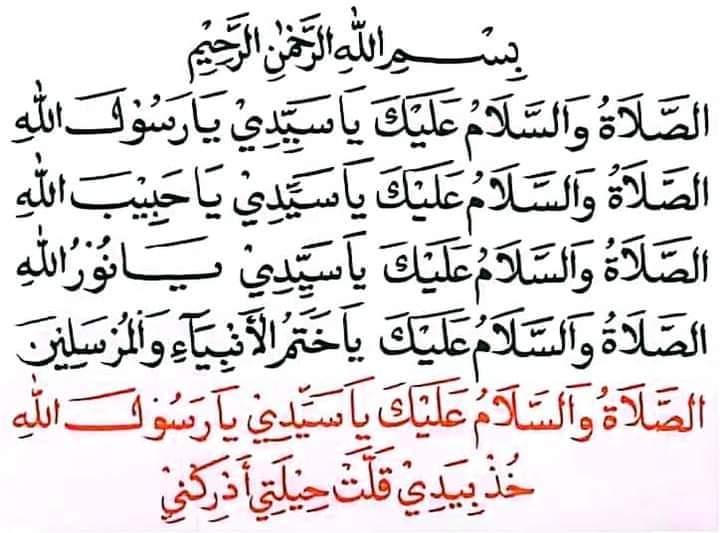 بِسْمِ اللهِ الرَّحْمٰنِ الرَّحِيْمِ
الصَّلَاةُ وَالسَّلَامُ عَلَيْكَ يَا سَيِّدِيْ يَا رَسُوْلَ اللهِ
الصَّلَاةُ وَالسَّلَامُ عَلَيْكَ يَا سَيِّدِيْ يَا حَبِيْبَ اللهِ
الصَّلَاةُ وَالسَّلَامُ عَلَيْكَ يَا سَيِّدِيْ يَا نُوْرُ اللهِ
الصَّلَاةُ وَالسَّلَامُ عَلَيْكَ يَا خَتَمُ الْأَنْبِيَآءِ وَالْمُرْسَلِيْنَ
الصَّلَاةُ وَالسَّلَامُ عَلَيْكَ يَا سَيِّدِيْ يَا رَسُوْلَ اللهِ
خُذْ بِيَدِيْ قَلَّتْ حِيْلَتِيْ أَدْرِكْنِيْ